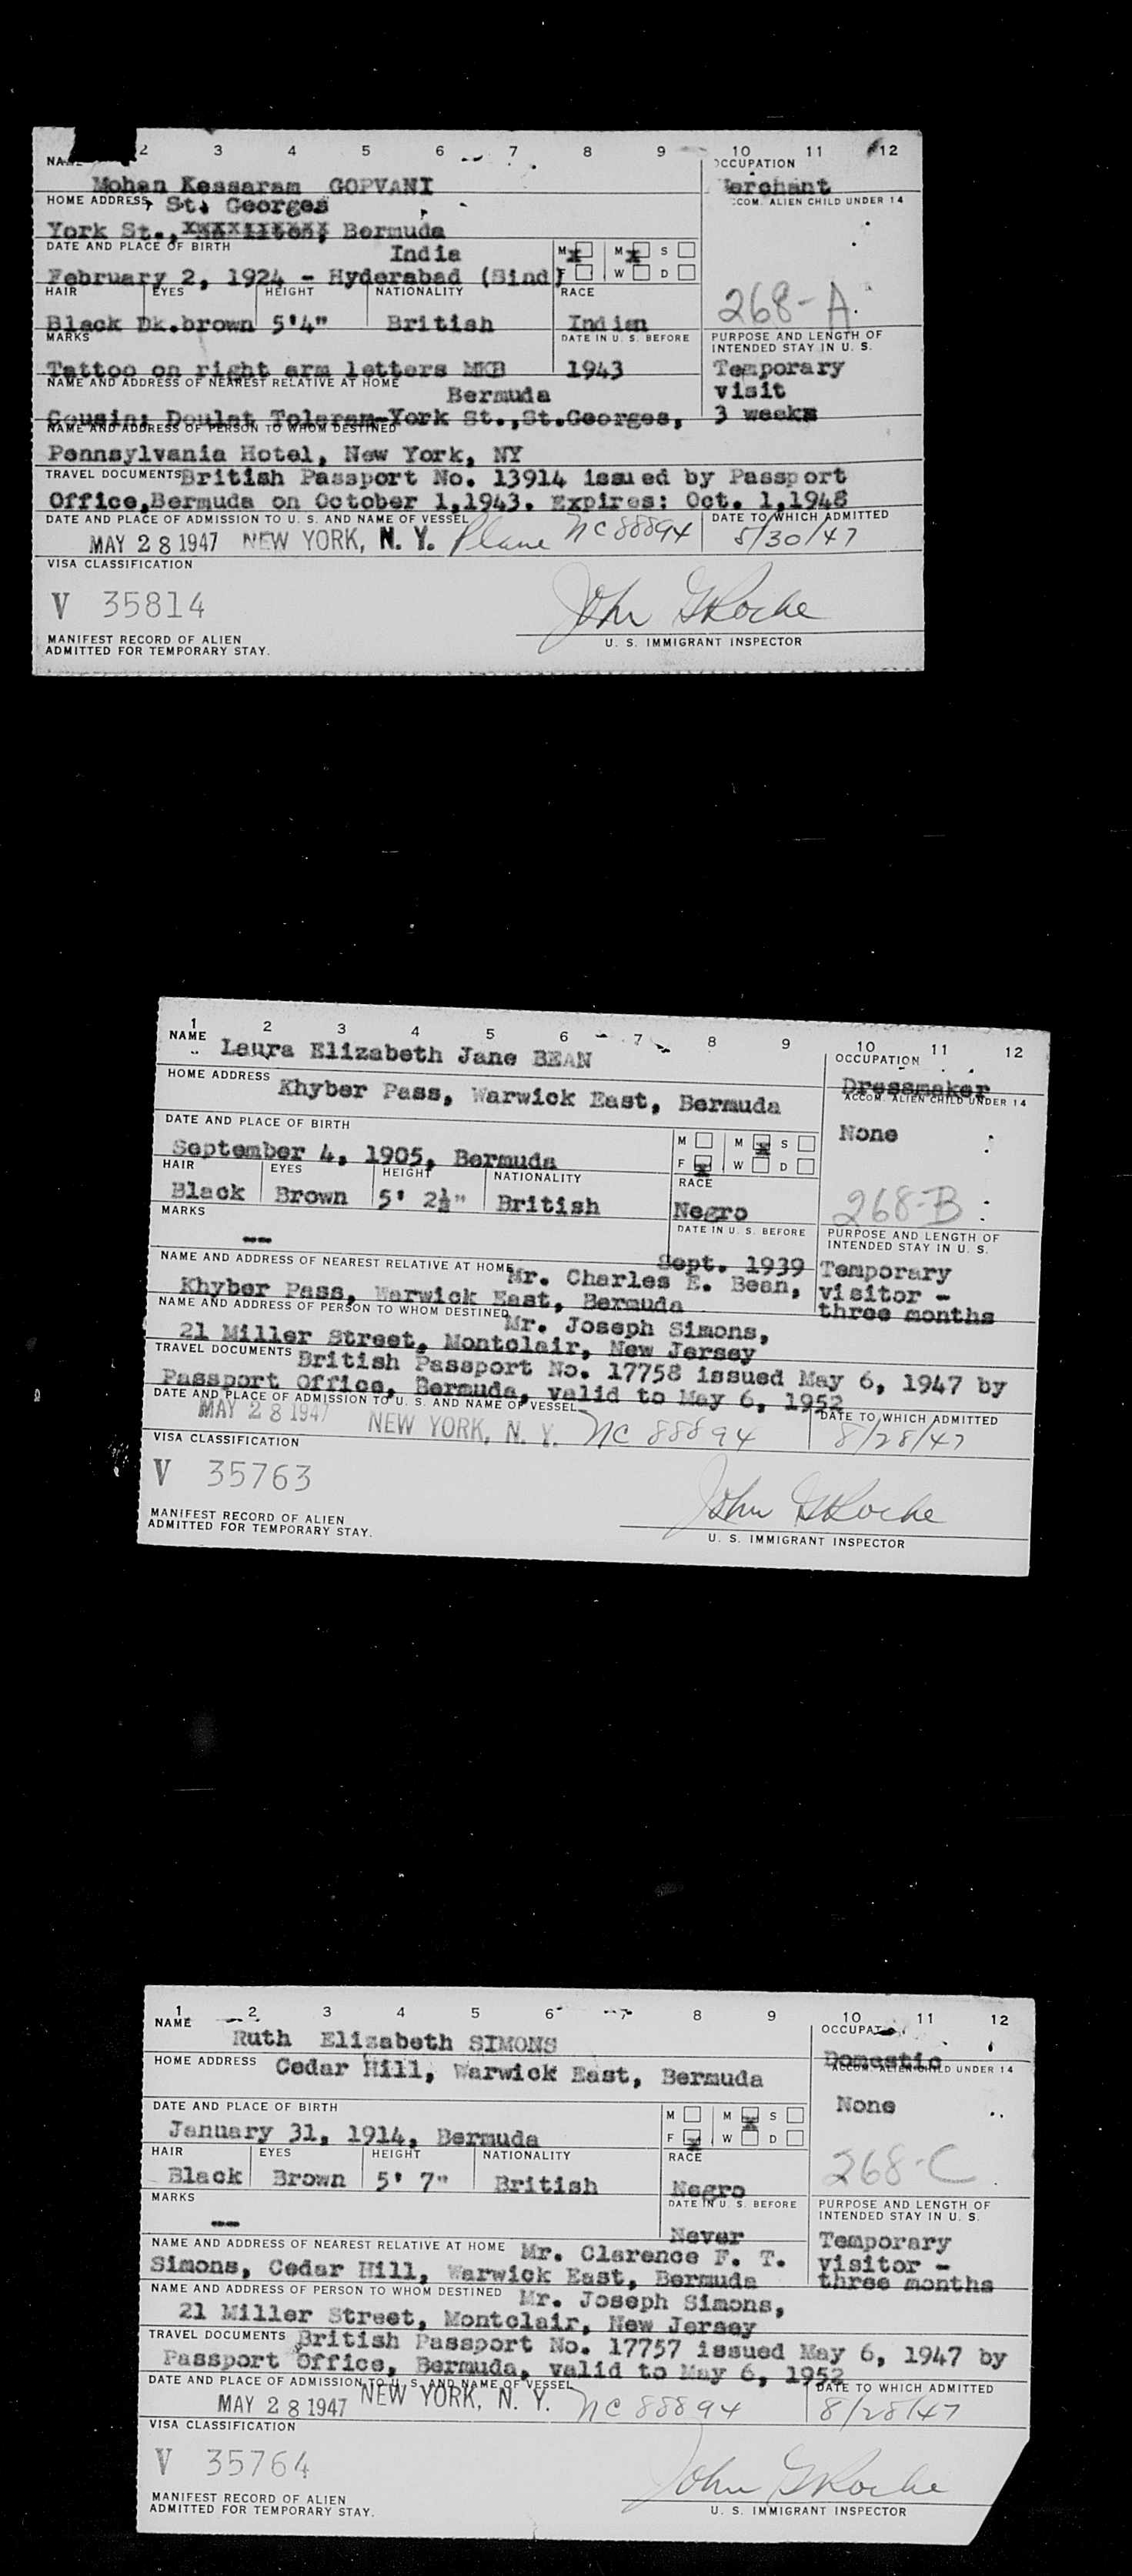 2 3 4 5 6 7 8 9 10 11 12
OCCUPATION
Mohan Kessaram GOPVANI
Merchant
HOME ADDRESS, St. Georges
ACCOM. ALIEN CHILD UNDER 14
York St., Bermuda
DATE AND PLACE OF BIRTH India M M S
February 2, 1924 - Hyderabad (Sind) F W D
HAIR EYES HEIGHT NATIONALITY RACE
268-A
Black Dk.brown 5'4" British Indian
MARKS DATE IN U. S. BEFORE PURPOSE AND LENGTH OF
INTENDED STAY IN U. S.
Tattoo on right arm letters MKB 1943 Temporary
NAME AND ADDRESS OF NEAREST RELATIVE AT HOME Bermuda visit
Cousin: Doulat Tolaram-York St.,St.Georges, 3 weeks
NAME AND ADDRESS OF PERSON TO WHOM DESTINED
Pennsylvania Hotel, New York, NY
TRAVEL DOCUMENTS British Passport No. 13914 issued by Passport
Office,Bermuda on October 1,1943. Expires: Oct. 1,1948
DATE AND PLACE OF ADMISSION TO U. S. AND NAME OF VESSEL DATE TO WHICH ADMITTED
MAY 28 1947 NEW YORK, N. Y. Plane NC 88894 5/30/47
VISA CLASSIFICATION
V 35814 John G Roche
MANIFEST RECORD OF ALIEN U. S. IMMIGRANT INSPECTOR
ADMITTED FOR TEMPORARY STAY.
1 2 3 4 5 6 7 8 9 10 11 12
NAME OCCUPATION
Laura Elizabeth Jane BEAN
Dressmaker
HOME ADDRESS Khyber Pass, Warwick East, Bermuda ACCOM. ALIEN CHILD UNDER 14
DATE AND PLACE OF BIRTH M M S None
September 4, 1905, Bermuda F W D
HAIR EYES HEIGHT NATIONALITY RACE
Black Brown 5' 2½" British Negro 268-B
MARKS DATE IN U. S. BEFORE PURPOSE AND LENGTH OF
INTENDED STAY IN U. S.
-- Sept. 1939 Temporary
NAME AND ADDRESS OF NEAREST RELATIVE AT HOME Mr. Charles E. Bean, visitor -
Khyber Pass, Warwick East, Bermuda three months
NAME AND ADDRESS OF PERSON TO WHOM DESTINED Mr. Joseph Simons,
21 Miller Street, Montclair, New Jersey
TRAVEL DOCUMENTS British Passport No. 17758 issued May 6, 1947 by
Passport Office, Bermuda, valid to May 6, 1952
DATE AND PLACE OF ADMISSION TO U. S. AND NAME OF VESSEL DATE TO WHICH ADMITTED
MAY 28 1947 NEW YORK, N. Y. NC 88894 8/28/47
VISA CLASSIFICATION
V 35763 John G Roche
MANIFEST RECORD OF ALIEN U. S. IMMIGRANT INSPECTOR
ADMITTED FOR TEMPORARY STAY.
1 2 3 4 5 6 7 8 9 10 11 12
NAME OCCUPAT
Ruth Elizabeth SIMONS
Domestic
HOME ADDRESS Cedar Hill, Warwick East, Bermuda ACCOM. ALIEN CHILD UNDER 14
DATE AND PLACE OF BIRTH M M S None
January 31, 1914, Bermuda F W D
HAIR EYES HEIGHT NATIONALITY RACE
Black Brown 5' 7" British Negro 268-C
MARKS DATE IN U. S. BEFORE PURPOSE AND LENGTH OF
INTENDED STAY IN U. S.
-- Never Temporary
NAME AND ADDRESS OF NEAREST RELATIVE AT HOME Mr. Clarence F. T. visitor -
Simons, Cedar Hill, Warwick East, Bermuda three months
NAME AND ADDRESS OF PERSON TO WHOM DESTINED Mr. Joseph Simons,
21 Miller Street, Montclair, New Jersey
TRAVEL DOCUMENTS British Passport No. 17757 issued May 6, 1947 by
Passport Office, Bermuda, valid to May 6, 1952
DATE AND PLACE OF ADMISSION TO U. S. AND NAME OF VESSEL DATE TO WHICH ADMITTED
MAY 28 1947 NEW YORK, N. Y. NC 88894 8/28/47
VISA CLASSIFICATION
V 35764 John G Roche
MANIFEST RECORD OF ALIEN U. S. IMMIGRANT INSPECTOR
ADMITTED FOR TEMPORARY STAY.